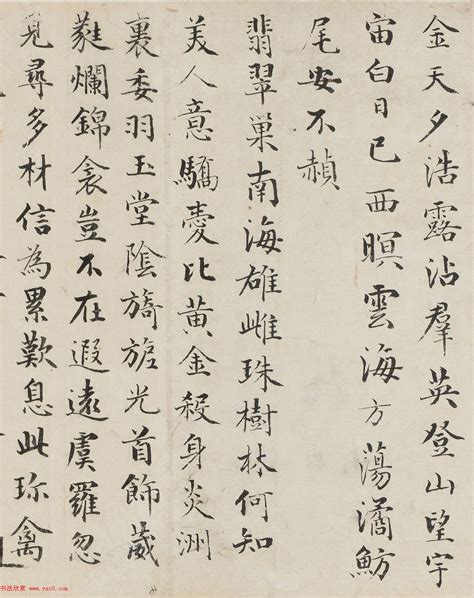 金天夕浩露沾羣英登山望宇
宙白日已西暝雲海方蕩潏魴
尾安不赬
翡翠巢南海雄雌珠樹林何知
美人意驕愛比黃金殺身炎洲
裏委羽玉堂陰旖旎光首飾葳
蕤爛錦衾豈不在遐遠虞羅忽
見尋多材信為累歎息此珎禽
书法欣赏 www.yac8.com